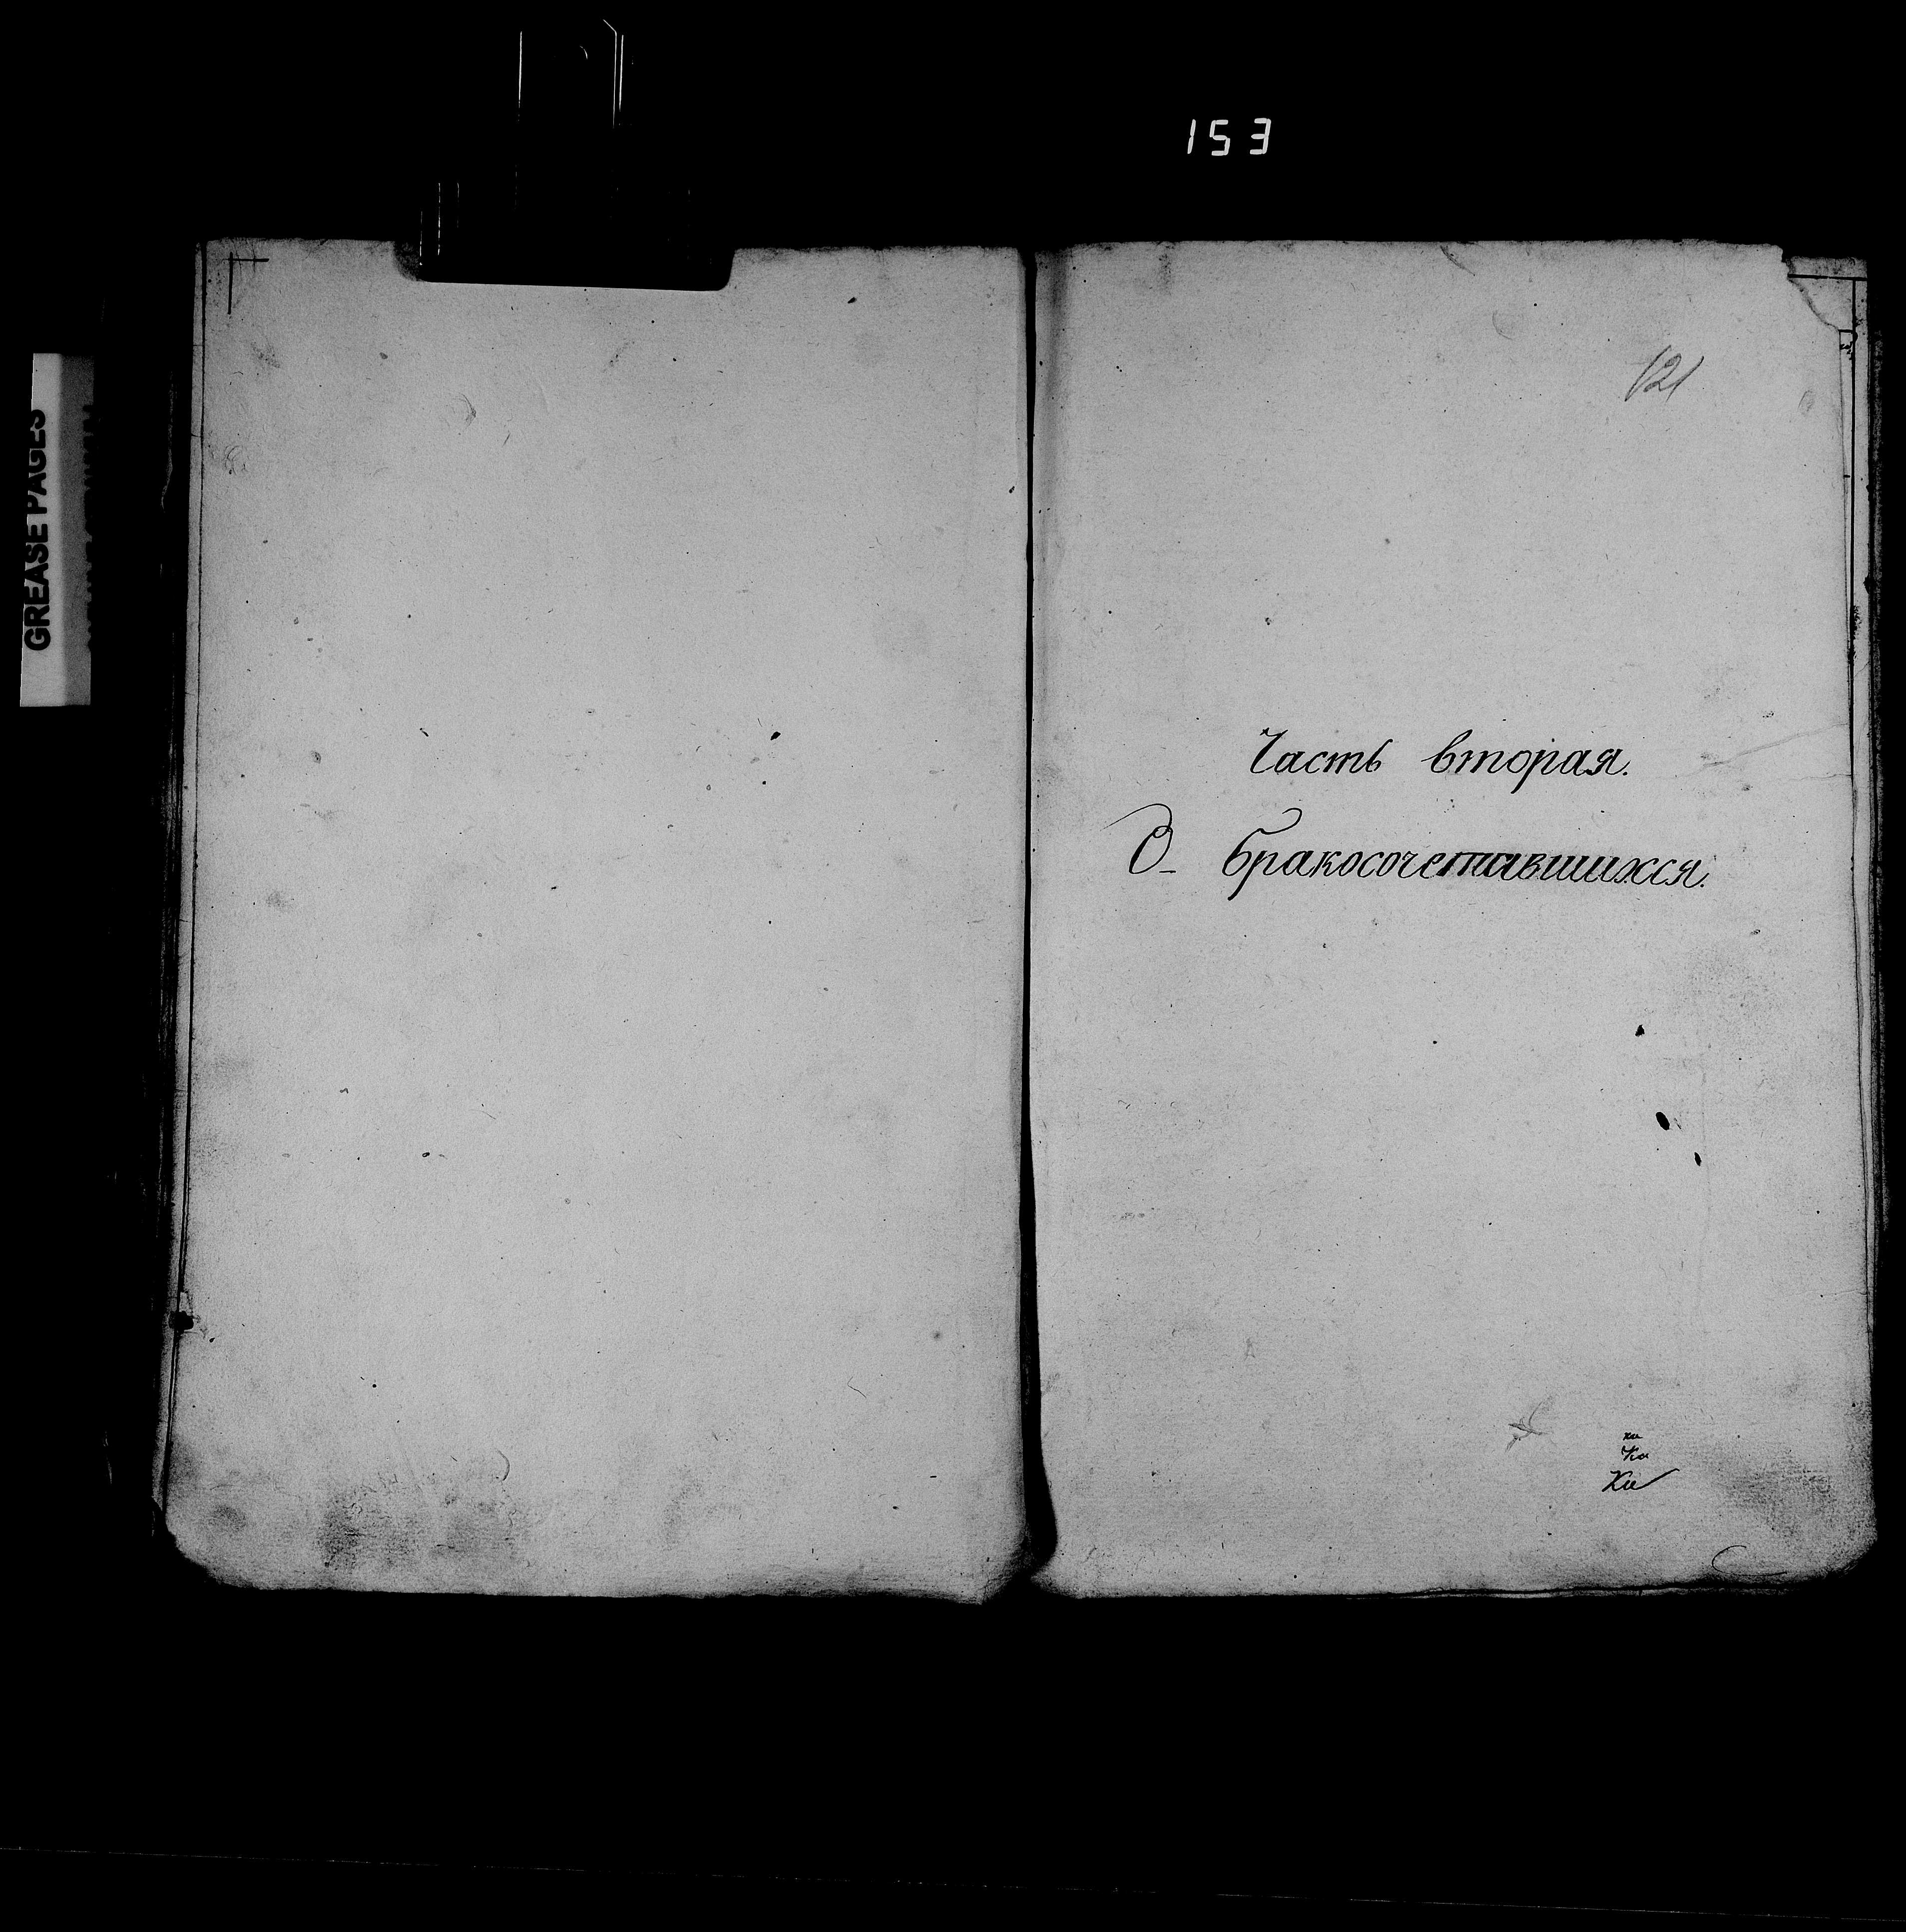 153
GREASE PAGES
121
Часть вторая.
О бракосочетавшихся.